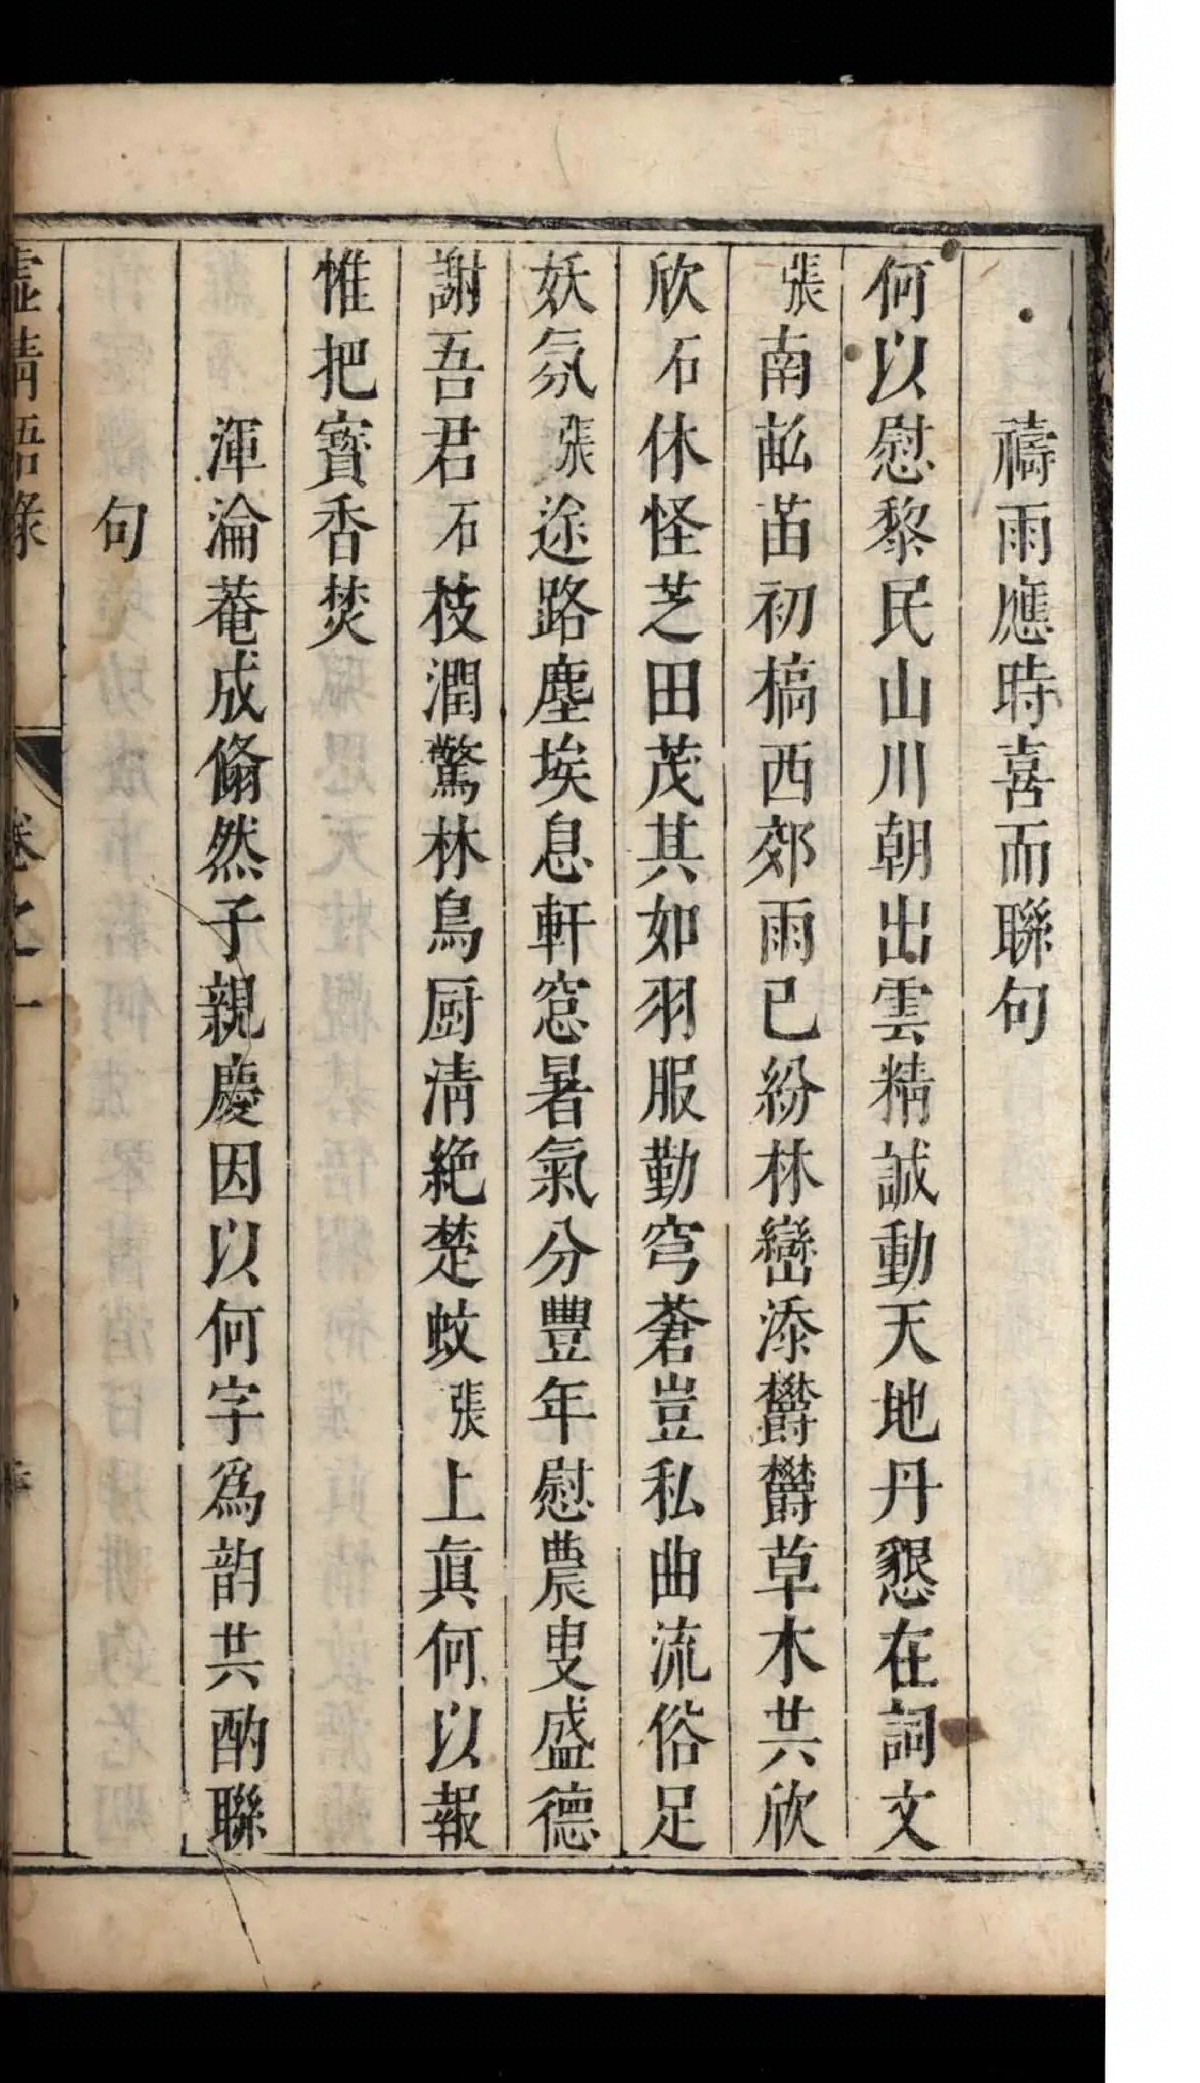 禱雨應時喜而聯句
何以慰黎民山川朝出雲精誠動天地丹懇在詞文
張南畝苗初槁西郊雨已紛林巒添欝欝草木共欣
欣石休怪芝田茂其如羽服勤穹蒼豈私曲流俗足
妖氛張途路塵埃息軒窓暑氣分豐年慰農叟盛德
謝吾君石枝潤驚林鳥厨淸絶楚蚊張上眞何以報
惟把寳香焚
渾淪菴成翛然子親慶因以何字爲韵共酌聯
句
虛靖語錄 卷之一